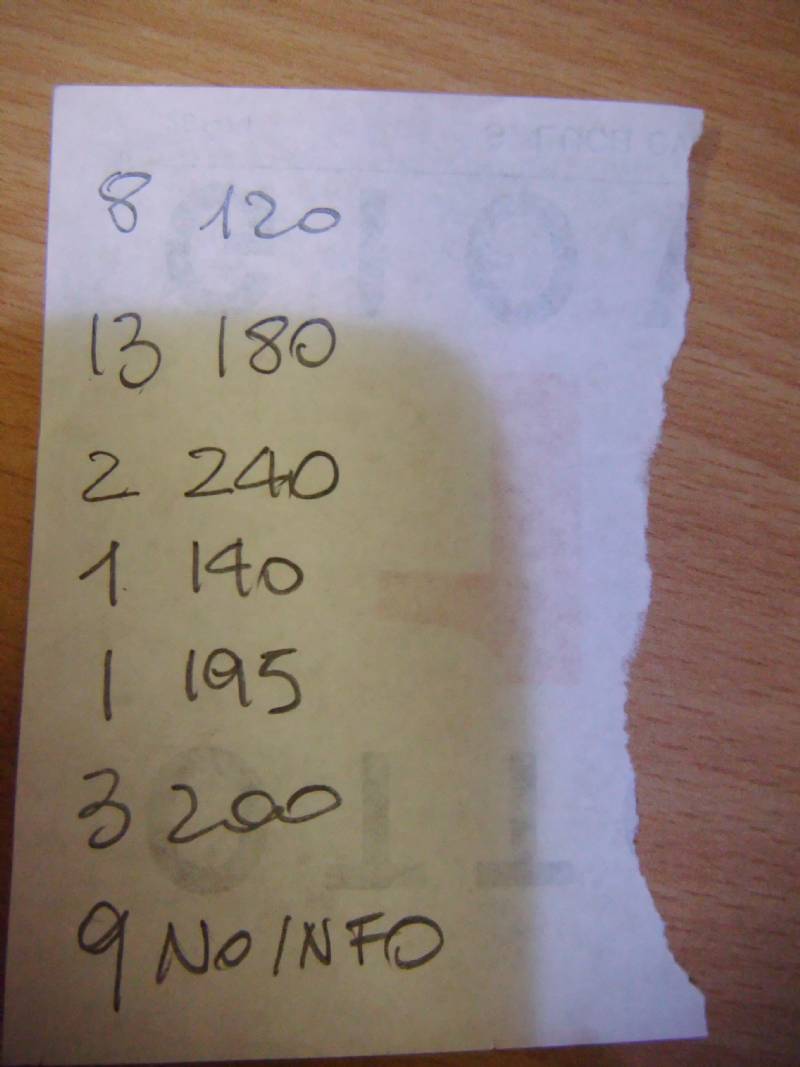 8 120
13 180
2 240
1 140
1 195
3 200
9 NO INFO